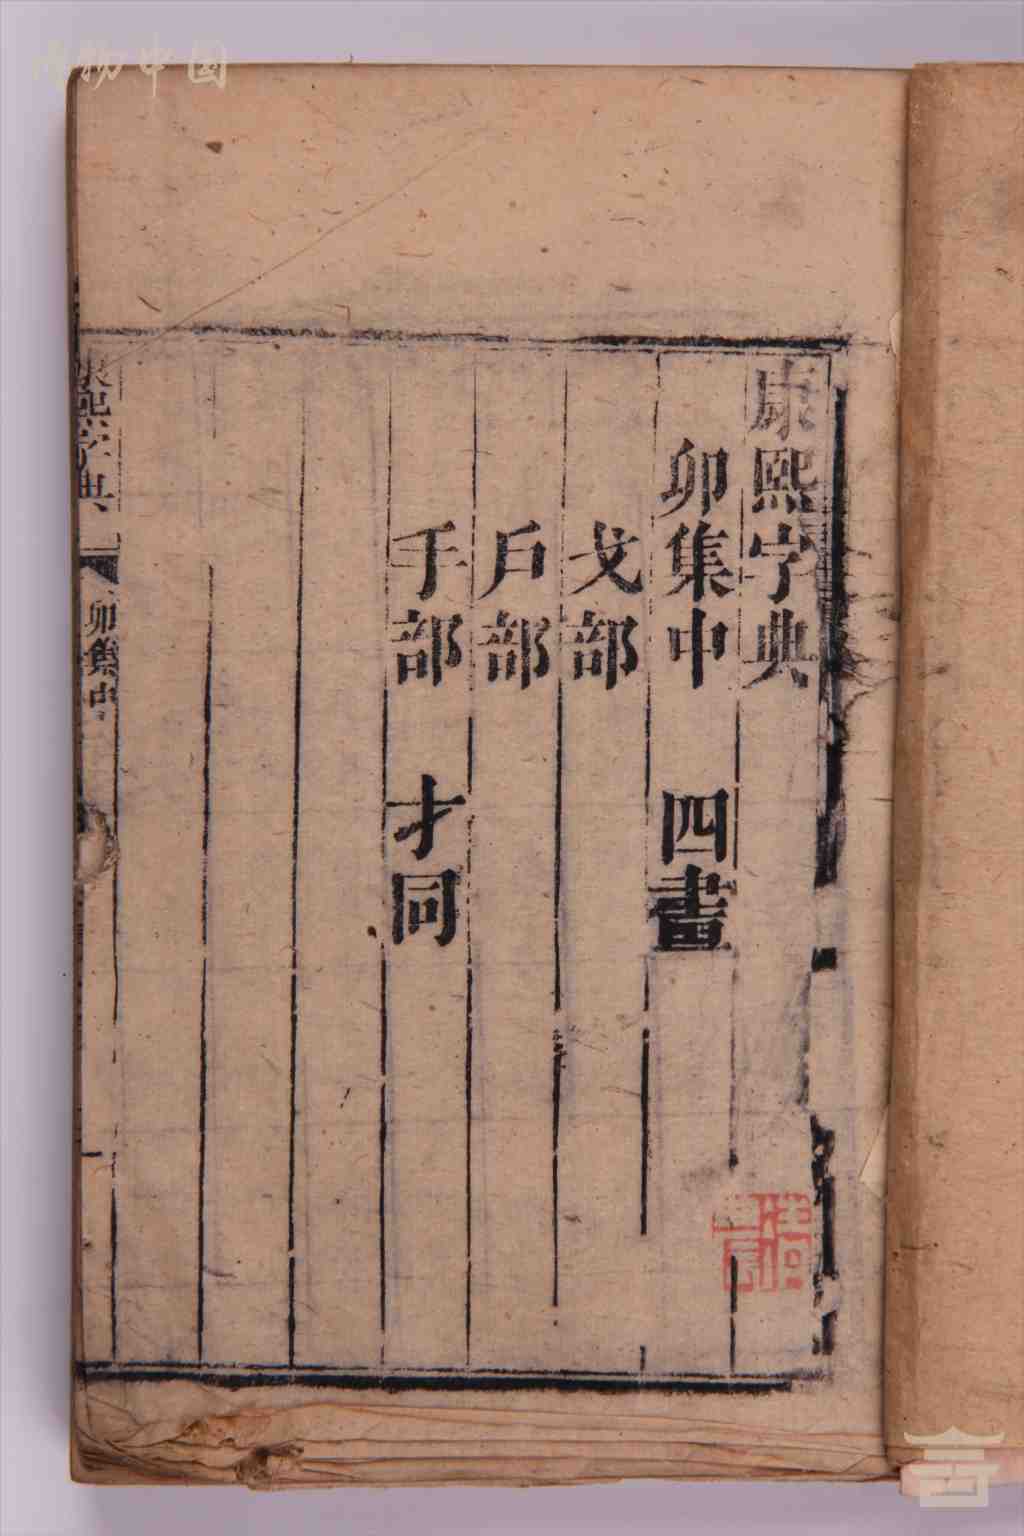 康熙字典
卯集中 四畫
戈部
戶部
手部 才同
康熙字典 卯集中
博物中国